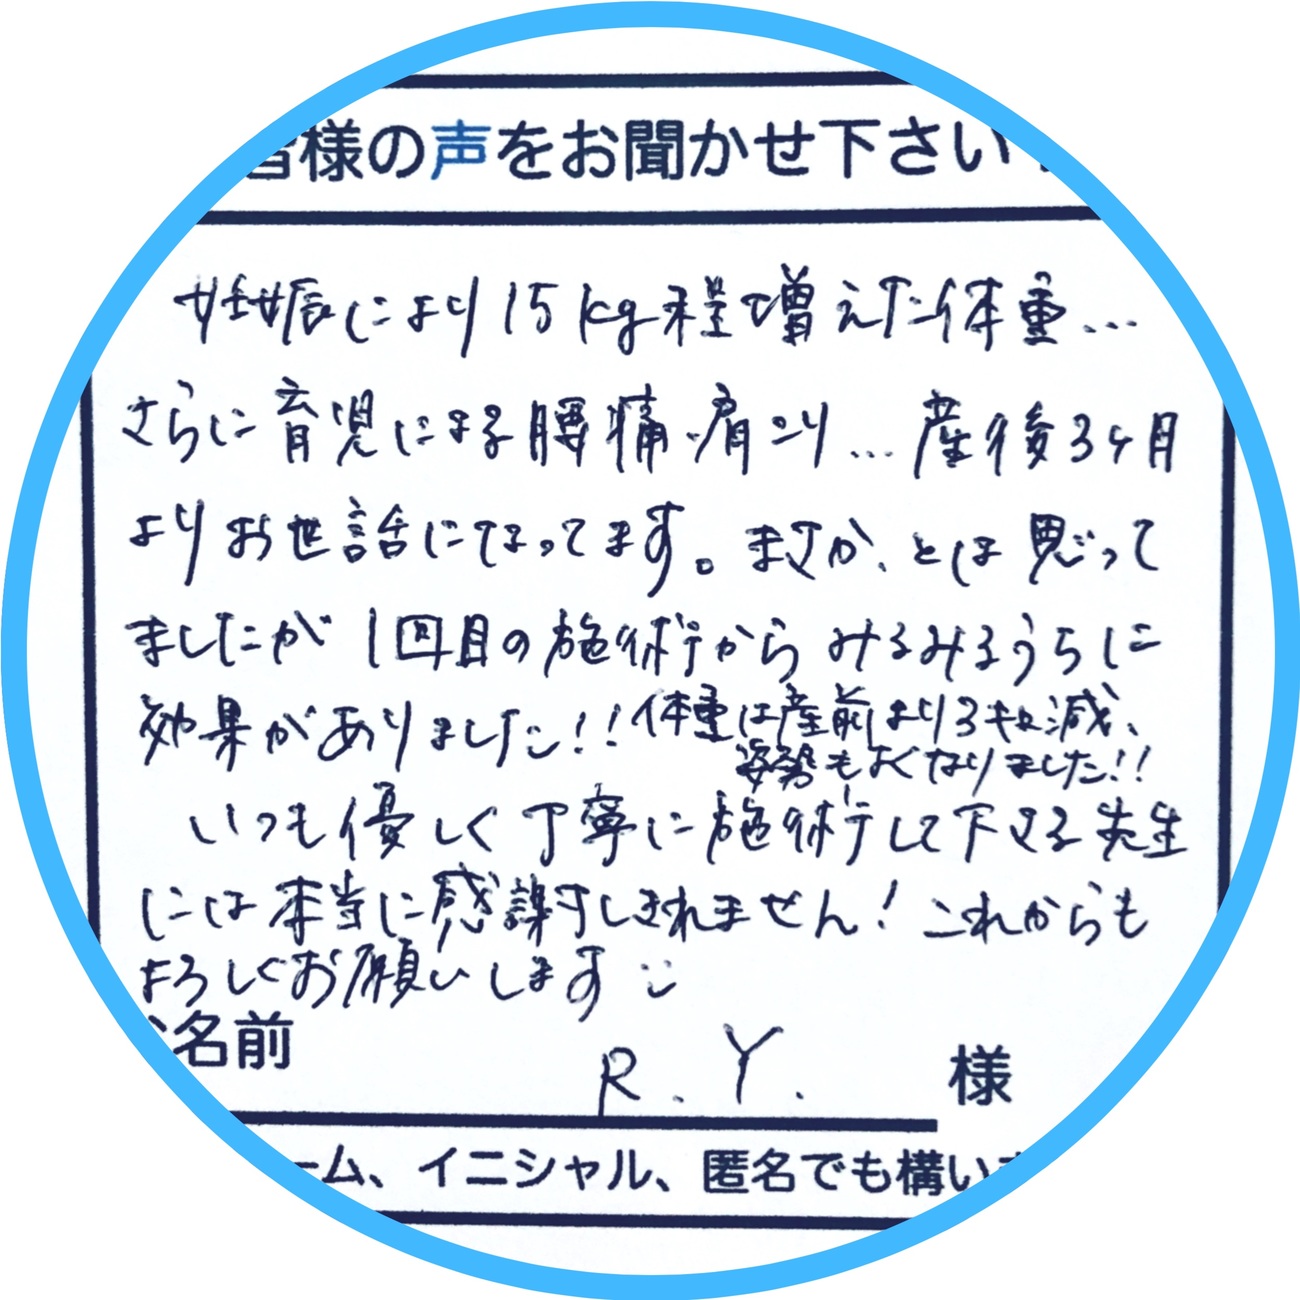 皆様の声をお聞かせ下さい
妊娠により15kg程増えた体重…
さらに育児による腰痛、肩こり…産後3ヶ月
よりお世話になってます。まさか、とは思って
ましたが1回目の施術からみるみるうちに
効果がありました!!体重は産前より3キロ減、
姿勢もよくなりました!!
いつも優しく丁寧に施術して下さる先生
には本当に感謝しきれません!これからも
よろしくお願いします
名前
R.Y. 様
ーム、イニシャル、匿名でも構い